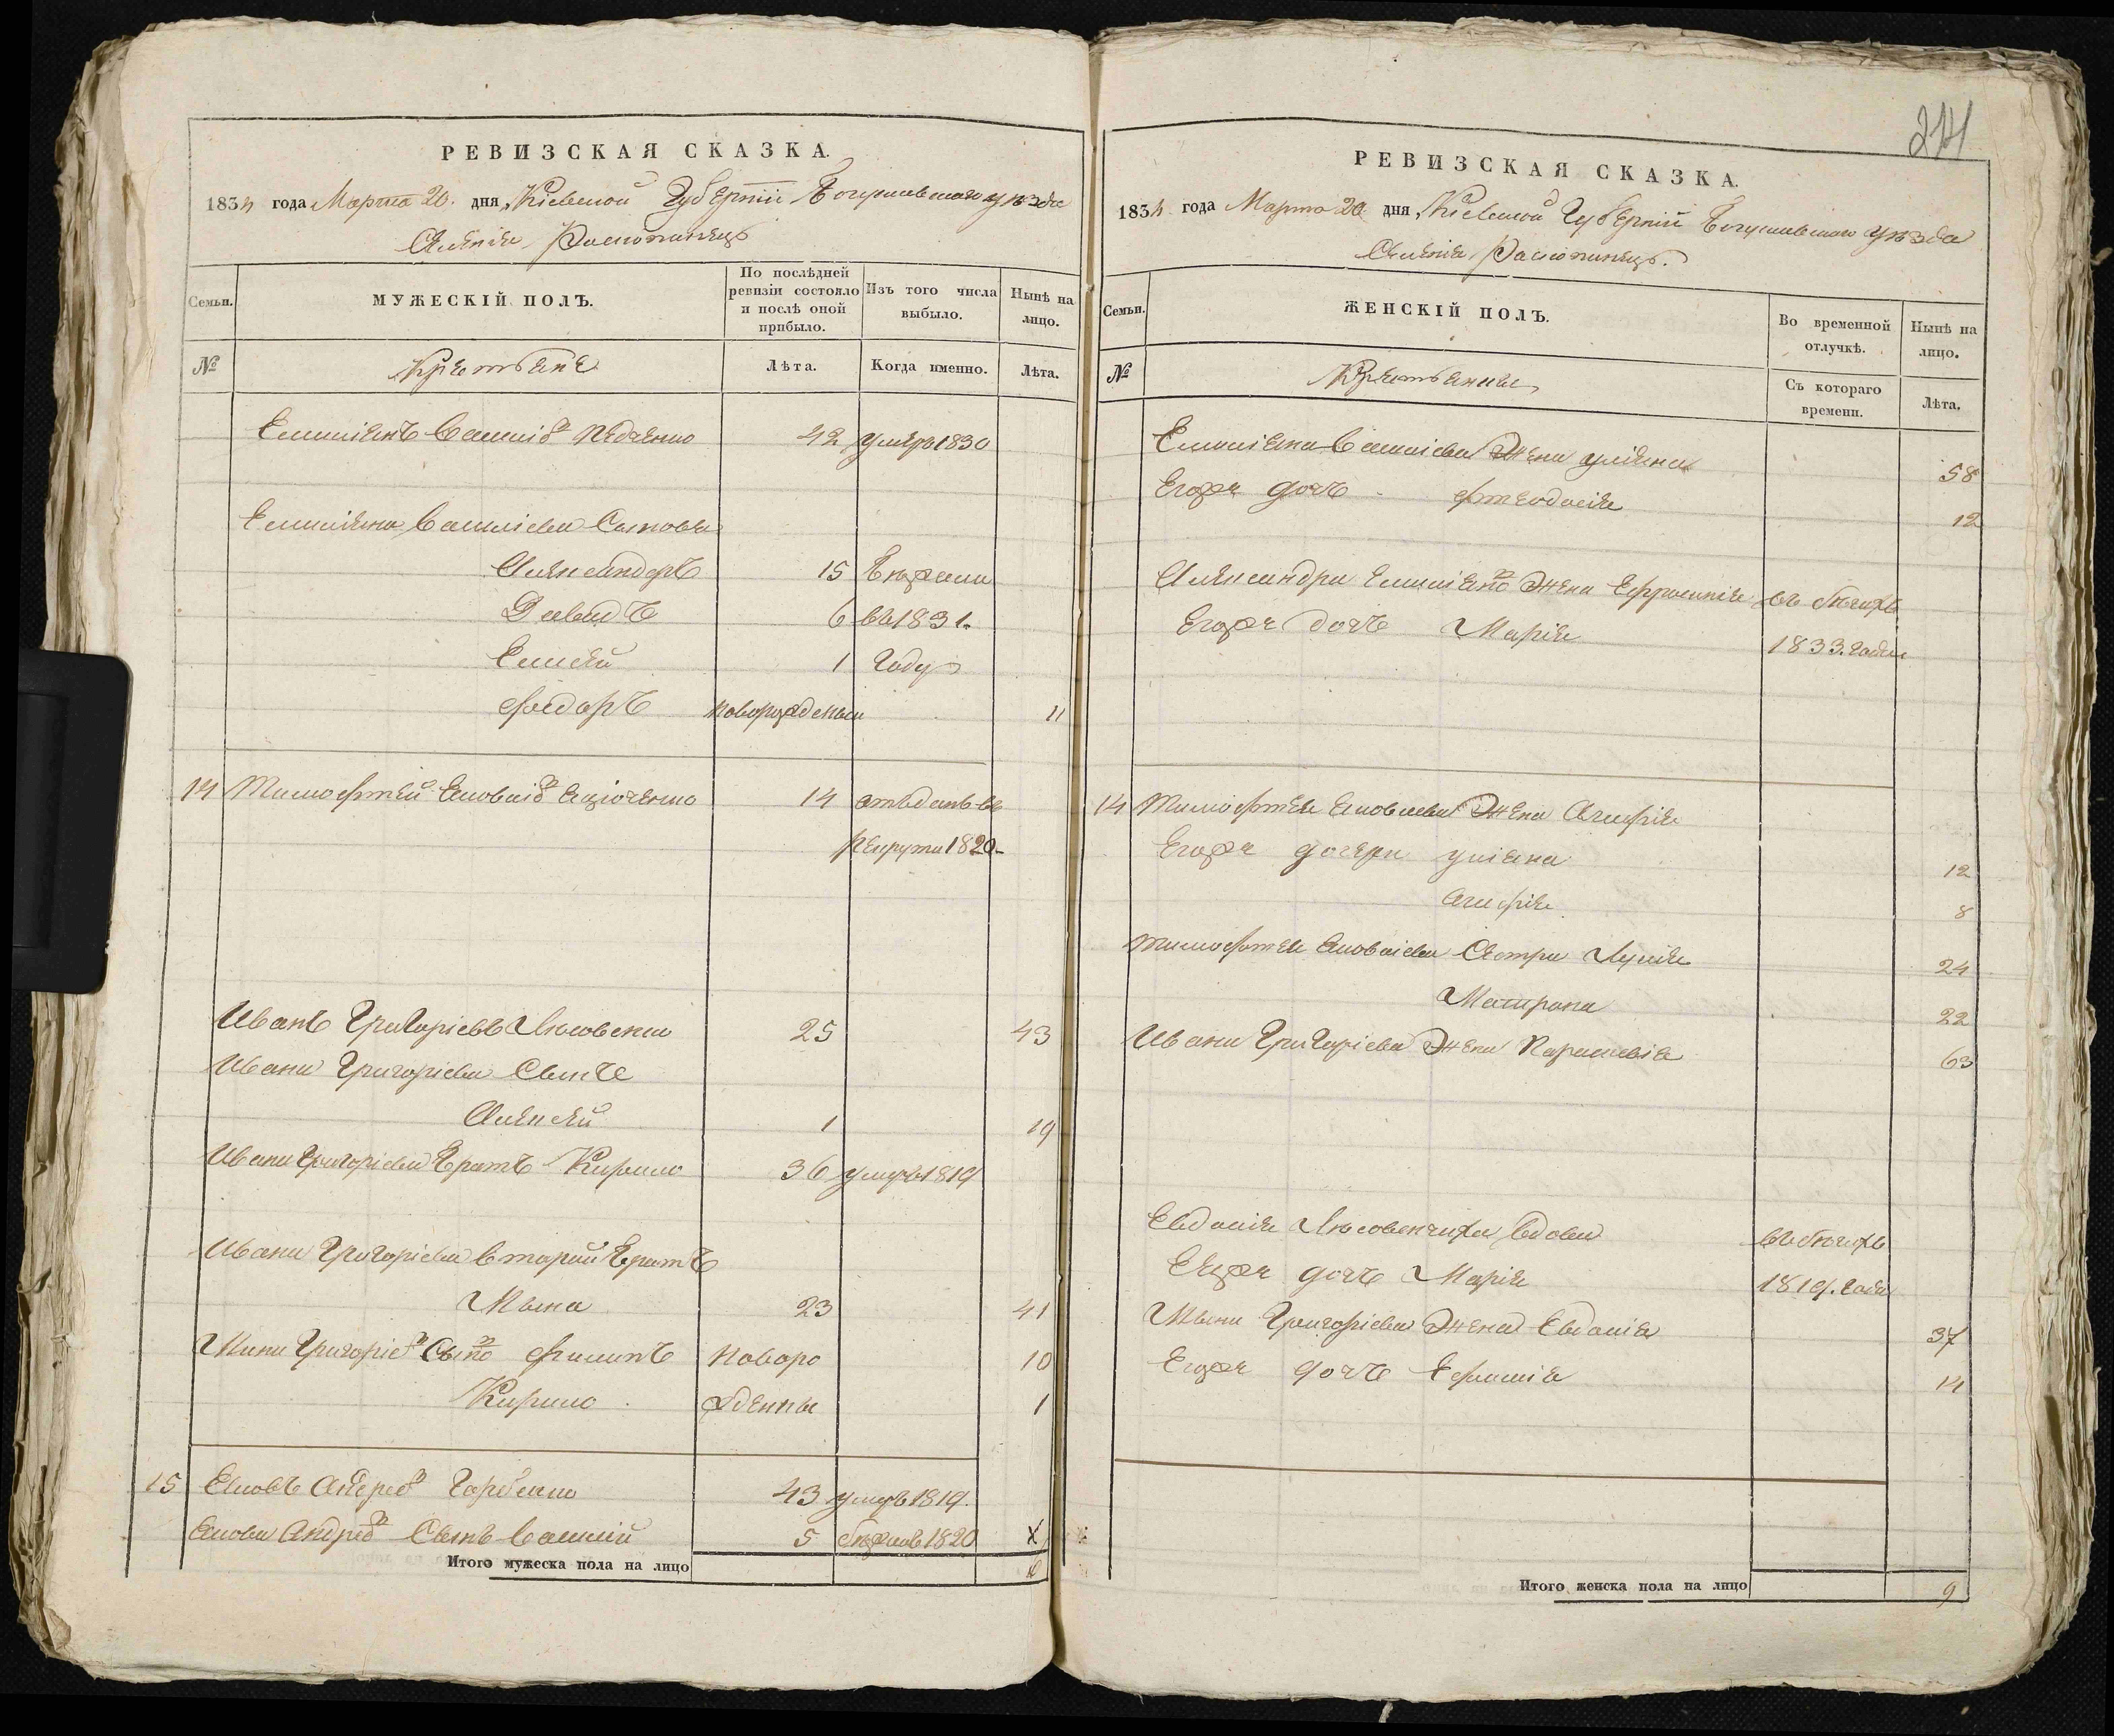 РЕВИЗСКАЯ СКАЗКА.
1834 года Марта 20. дня, Кіевской Губерніи Богуславскаго уѣзда
Селенія Раскопанецъ
Семьи.
МУЖЕСКІЙ ПОЛЪ.
По послѣдней ревизіи состояло и послѣ оной прибыло.
Изъ того числа выбыло.
Нынѣ на лицо.
№
Крестьяне
Лѣта.
Когда именно.
Лѣта.
Емилианъ Василіев 42 умеръ 1830
Емилияна Василіева Сыновья
Александеръ 15 Бѣжали
Давидъ 6 въ 1831.
1 Году
Феодоръ новорожденый 11
14 Тимофтей Яковлів 14 отъданъ въ
рекруты 1820.
Иванъ Григоріевъ 25 43
Ивана Григоріева Сынъ
Алексей 1 19
Ивана Григоріева Братъ Кирило 36 умеръ 1819
Ивана Григоріева вторый Братъ
Мына 23 41
Мины Григоріев Сыно Филипъ новоро 10
Кирило жденны 1
15 Яковъ Андреев 43 умеръ 1819.
Якова Андреев Сынъ Василій 5 бѣжалъ 1820
Итого мужеска пола на лицо
РЕВИЗСКАЯ СКАЗКА.
1834 года Марта 20. дня, Кіевской Губерніи Богуславскаго уѣзда
Селенія Раскопанецъ.
Семьи.
ЖЕНСКІЙ ПОЛЪ.
Во временной отлучкѣ.
Нынѣ на лицо.
№
Крестьянки
Съ котораго времени.
Лѣта.
Емилияна Василіева Жена улияна 58
Егоже дочь Фтеодосія 12
Александра Емилиано Жена Ефросинія въ бѣгахъ
Егоже дочь Марія 1833. года
14 Тимофтея Яковлева Жена Агафія
Егоже дочери улияна 12
Агафія 8
Тимофтея Яковліева Сестри 24
Матрона 22
Ивана Григоріева Жена Параскевія 63
Евдокія вдова въ бѣгахъ
Еяже дочь Марія 1819. года
Мыны Григоріева Жена Евдокія 37
Егоже дочь 14
Итого женска пола на лицо 9